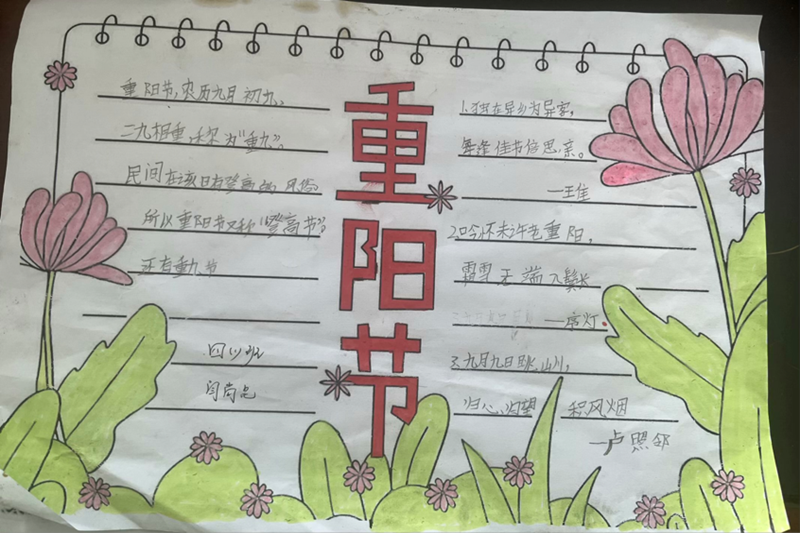 重阳节
重阳节,农历九月初九。
二九相重,称为"重九"。
民间在该日有登高的风俗
所以重阳节又称"登高节"。
还有重九节
四(1)班
闫尚
1.独在异乡为异客,
每逢佳节倍思亲。
—王维
2.吟怀未许老重阳,
霜雪无端入鬓长
—席灯
3.九月九日眺山川,
归心归望积风烟
—卢照邻